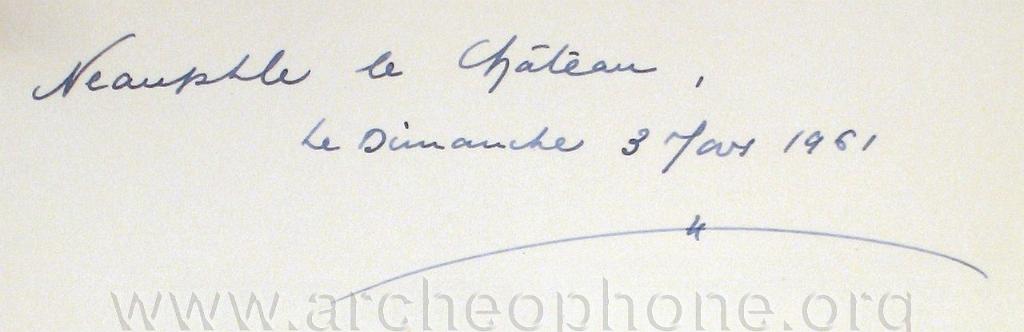 Neauphle le Château,
Le Dimanche 3 Mars 1961
www.archeophone.org